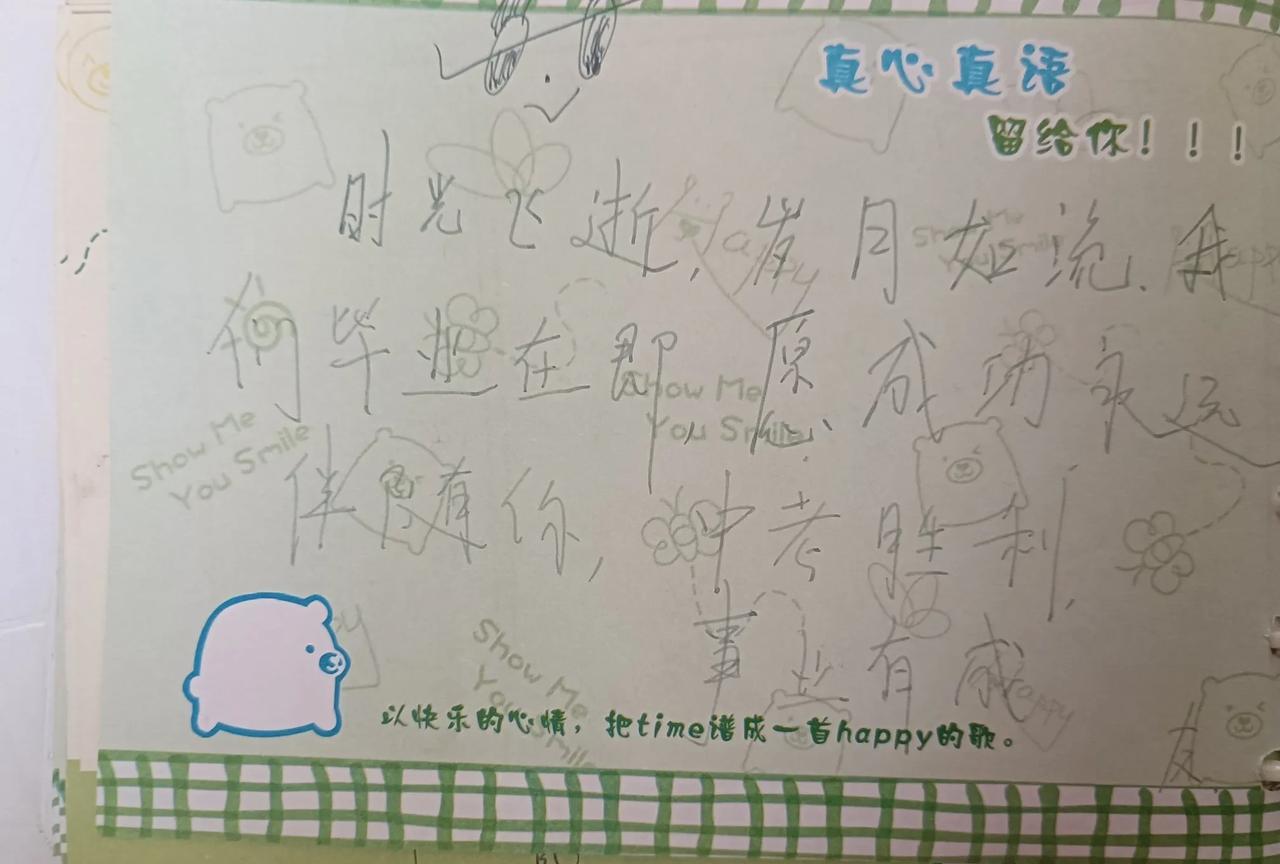 真心真语
留给你！！！
时光飞逝,岁月如流.我
们毕业在即愿成功永远
伴随有你,中考胜利,
事业有成
友
Show Me
You Smile
Show Me
You Smile
Show Me
You Smile
Show Me
You Smile
happy
happy
以快乐的心情，把time谱成一首happy的歌。